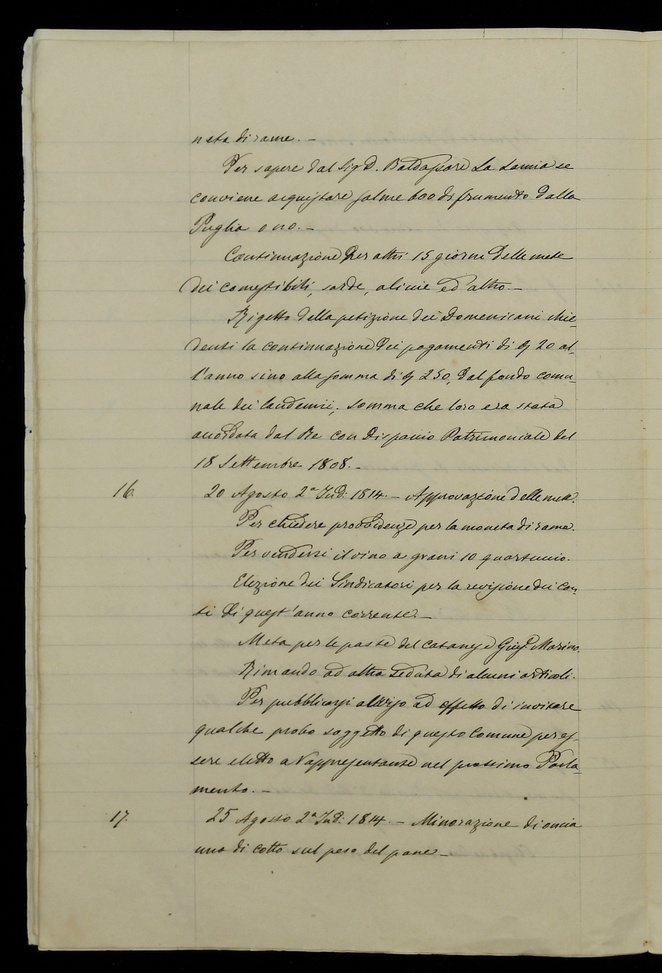 neta di rame. —
Per sapere dal Sig.r D. Baldassare La Lomia se
conviene acquistare salme 600 di frumento dalla
Puglia o no. —
Continuazione per altri 15 giorni delle mete
dei comestibili, sarde, alicie ed altro. —
Rigetto della petizione dei Domenicani chie-
denti la continuazione dei pagamenti di 20 al-
l'anno sino alla somma di 250, dal fondo comu-
nale dei laudemii; somma che loro era stata
accordata dal Re con Dispaccio Patrimoniale del
18 Settembre 1808. —
16. 20 Agosto 2.a Ind: 1814. — Approvazione delle mete.
Per chiedere provvidenze per la moneta di rame.
Per vendersi il vino a grani 10 quartuccio.
Elezione dei Sindicatori per la revisione dei con-
ti di quest'anno corrente. —
Meta per le paste del Catanese Giuse Marino.
Rimando ad altra seduta di alcuni articoli.
Per pubblicarsi avviso ad effetto di invitare
qualche probo soggetto di questo Comune per es-
sere eletto a Rappresentante nel prossimo Parla-
mento. —
17. 25 Agosto 2.a Ind: 1814. — Minorazione di oncia
una di cotto sul peso del pane —